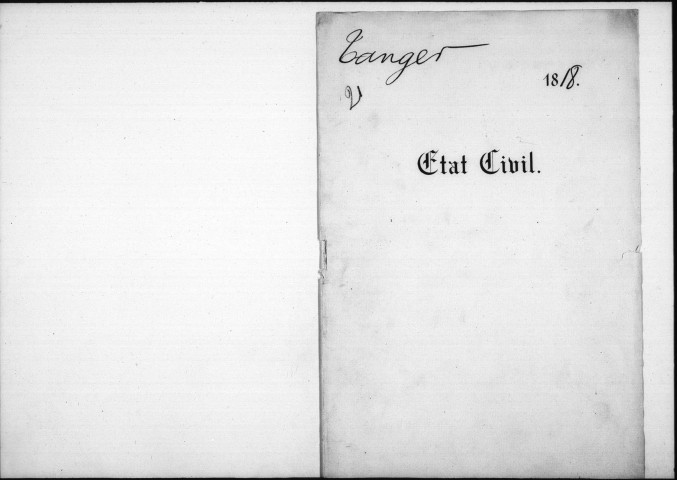 Tanger
1818.
Etat Civil.